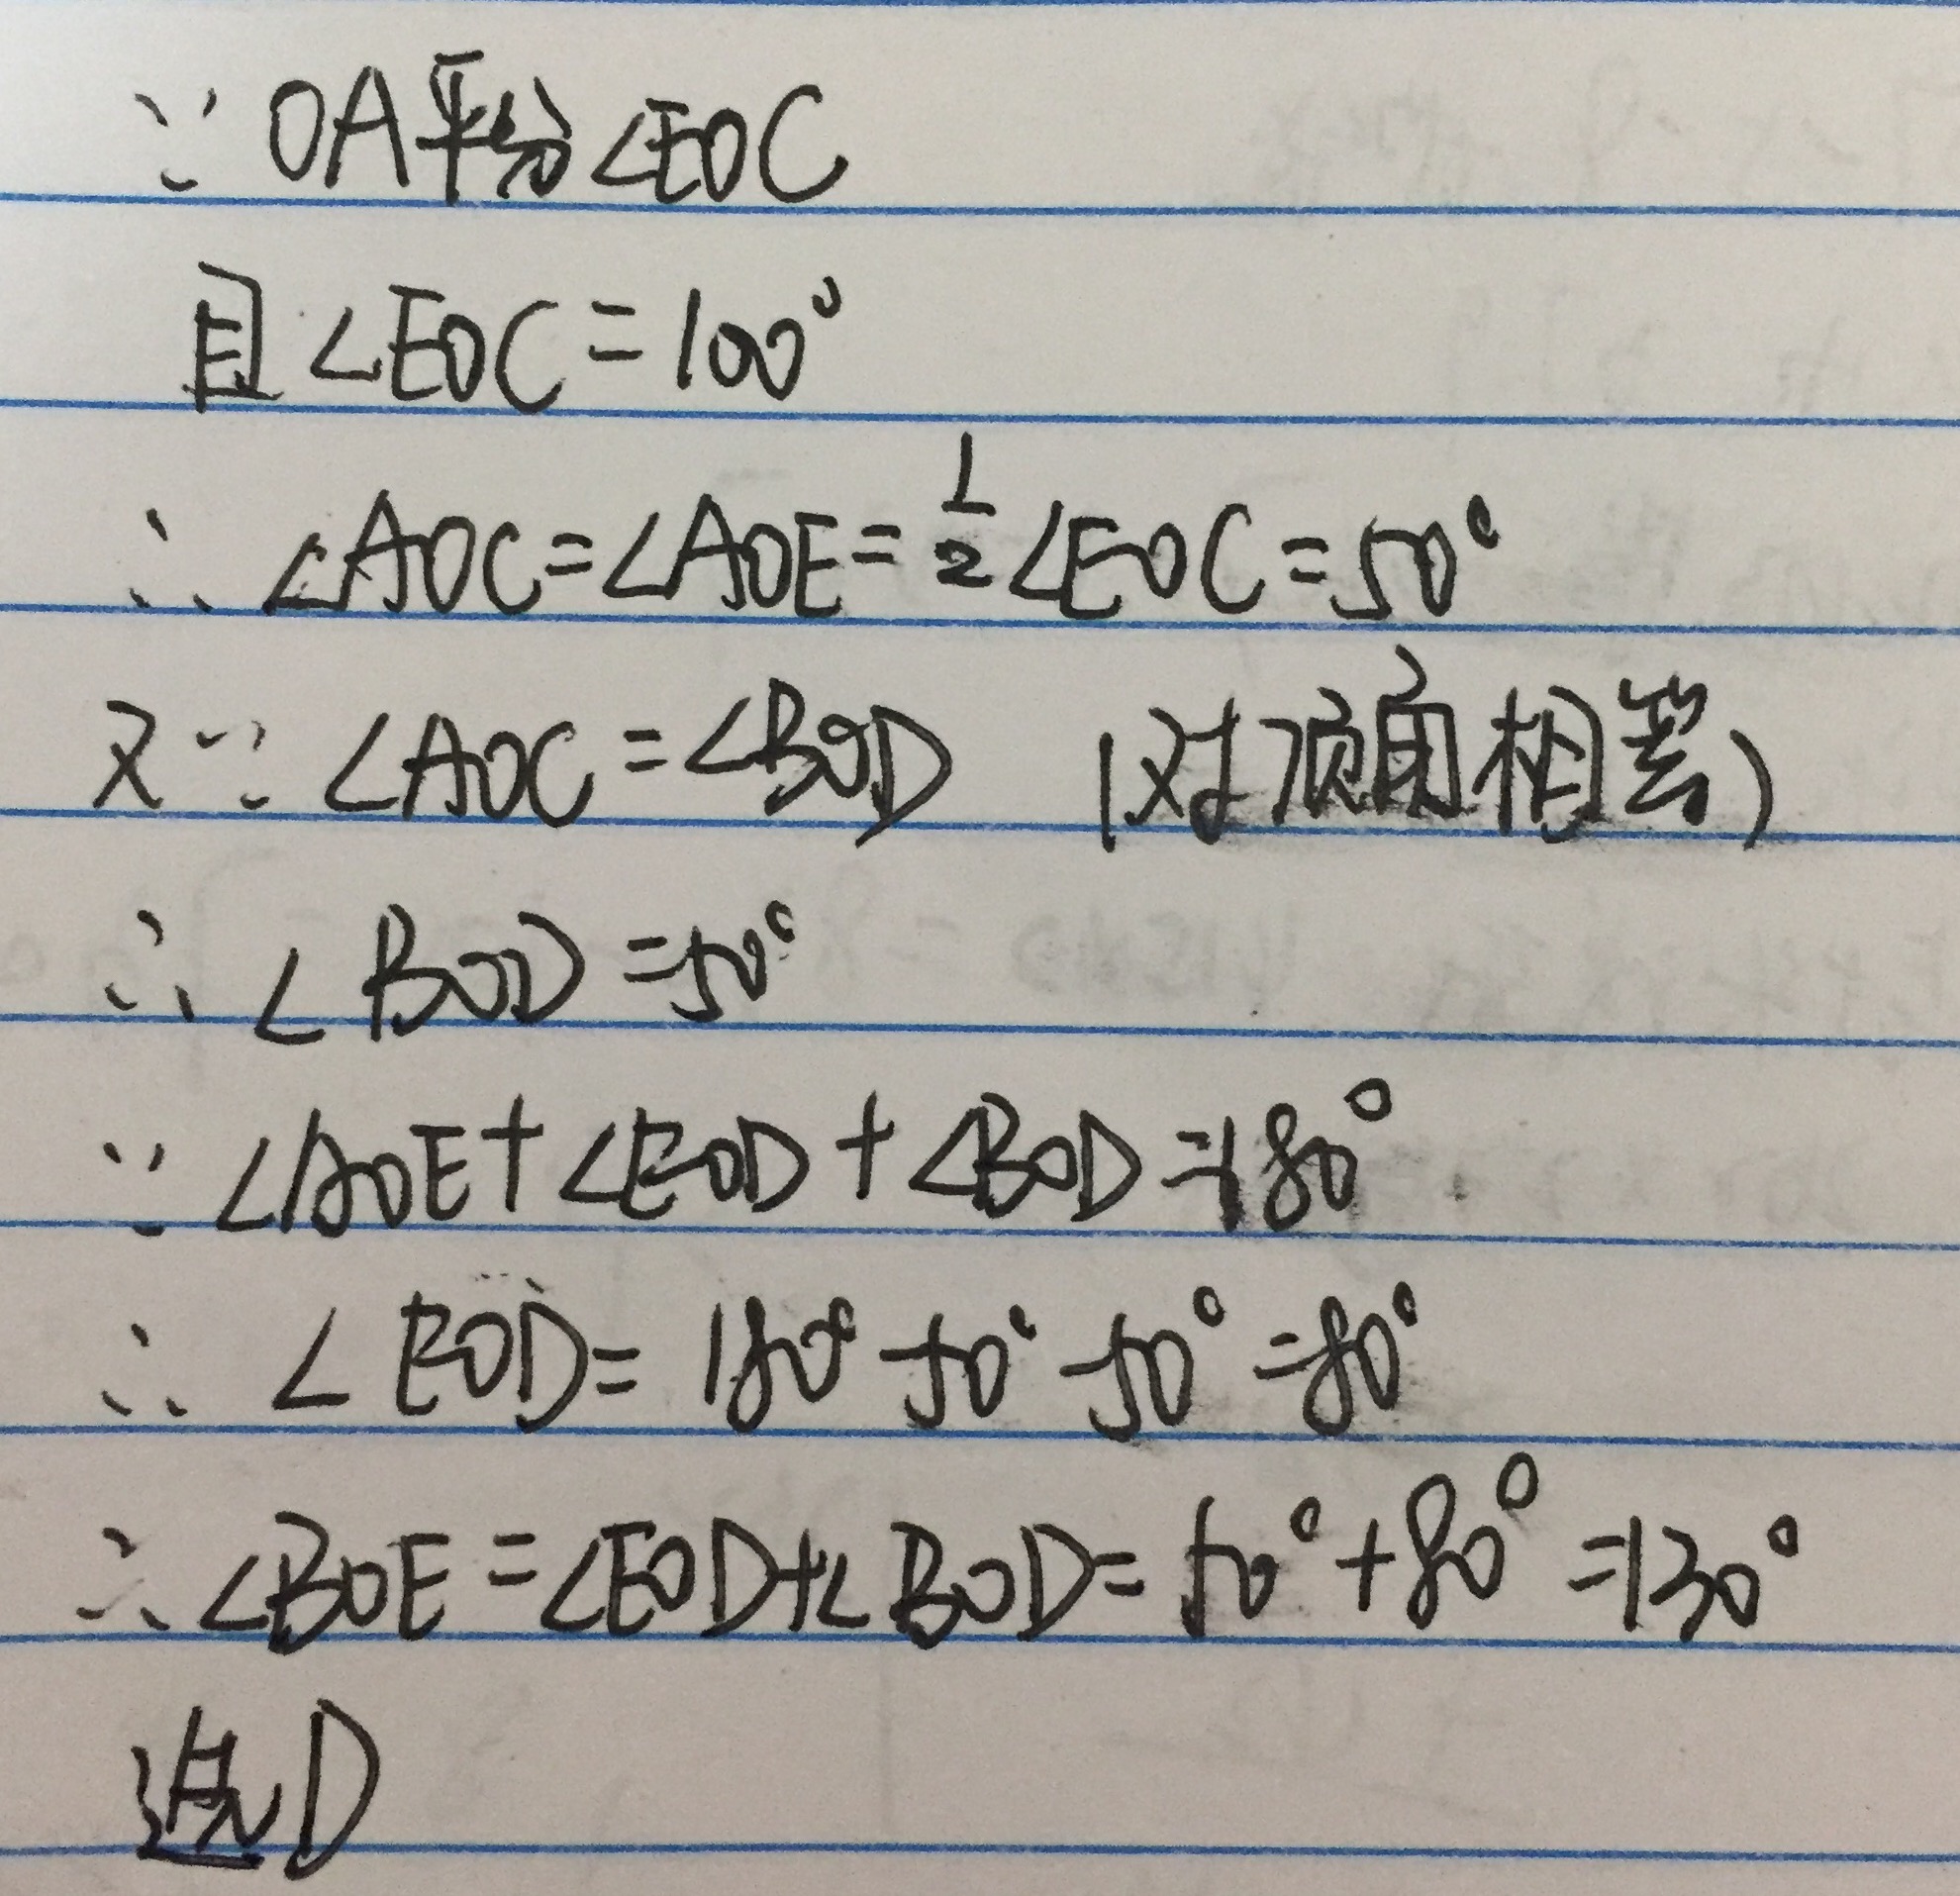 ∵ OA平分∠EOC
且∠EOC=100°
∴ ∠AOC=∠AOE=½∠EOC=50°
又∵ ∠AOC=∠BOD (对顶角相等)
∴ ∠BOD=50°
∵ ∠AOE+∠EOD+∠BOD=180°
∴ ∠EOD=180°-50°-50°=80°
∴ ∠BOE=∠EOD+∠BOD=50°+80°=130°
选D